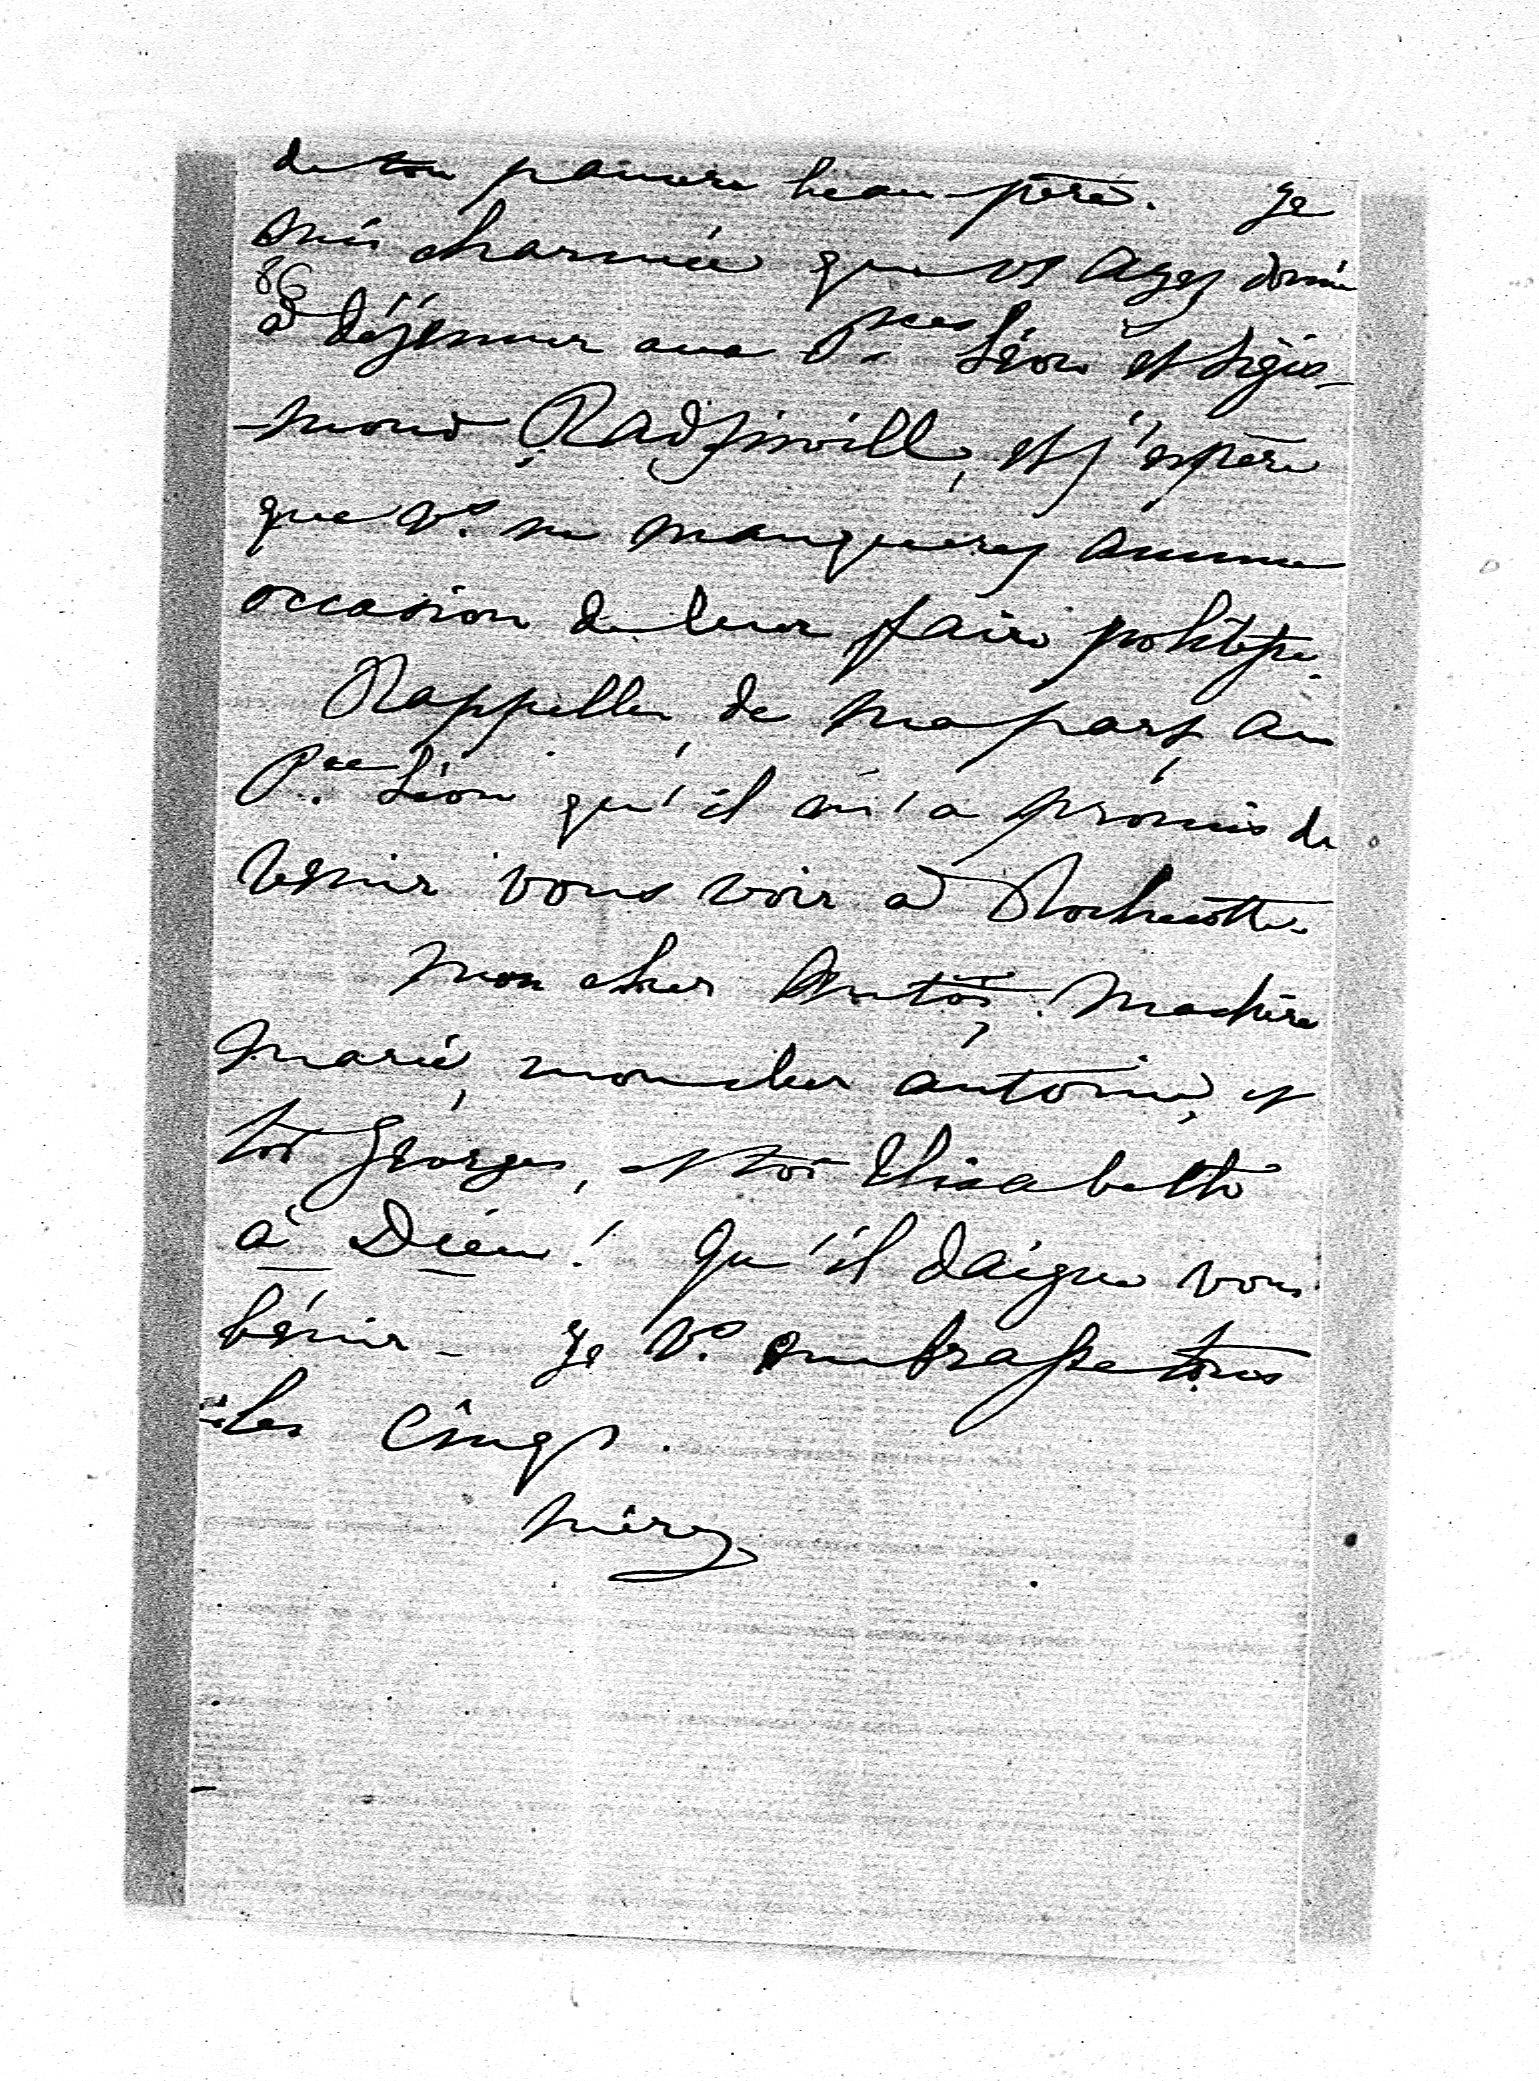 de ton pauvre beau-père. Je
suis charmée que vs ayez donné
86
à déjeuner aux Pces Léon et Sigis-
-mond Radziwill, et j'espère
que vs ne manquerez aucune
occasion de leur faire politesse.
Rappellez, de ma part, au
Pce Léon qu'il m'a promis de
venir vous voir à Rochecotte.
Mon cher, Ma chère
Marie, mon cher Antoine, et
toi Georges, et toi Elisabeth
à Dieu! Qu'il daigne vous
bénir - Je vs embrasse tous
les Cinq.
Mère